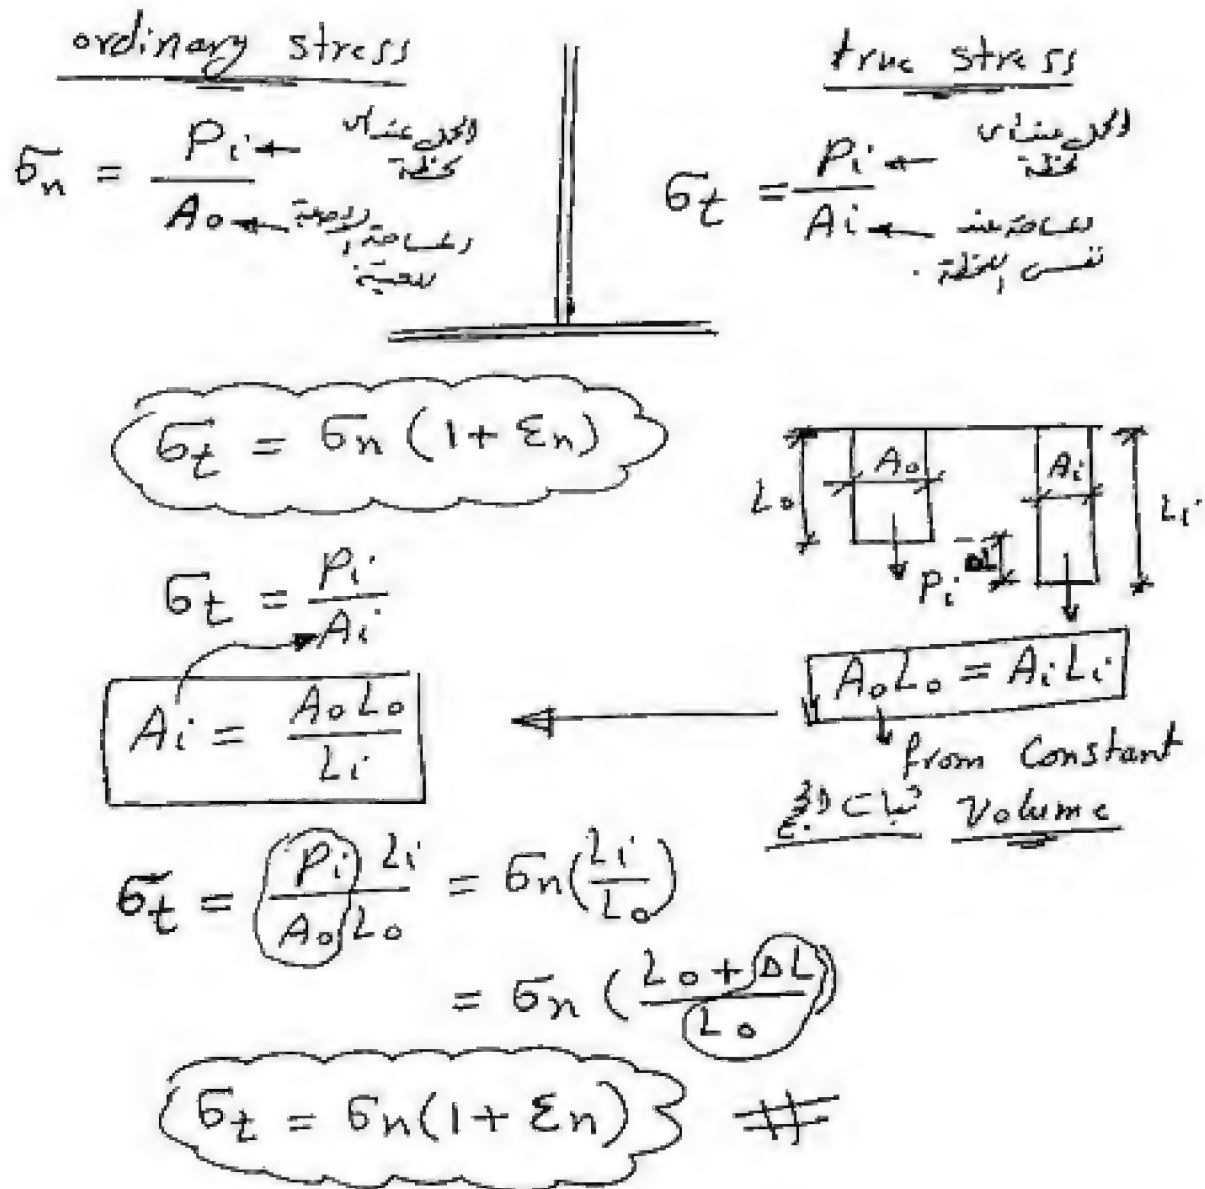 ordinary stress
σn = Pi / Ao
الحمل عند أى
لحظة
المساحة الأصلية
للعينة.
true stress
σt = Pi / Ai
الحمل عند أى
لحظة
المساحة عند
نفس اللحظة.
σt = σn (1 + εn)
Lo Ao Ai Li
Pi ΔL
σt = Pi / Ai
Ao Lo = Ai Li
Ai = Ao Lo / Li
from Constant
ثبات الحجم Volume
σt = Pi Li / Ao Lo = σn (Li / Lo)
= σn ( Lo + ΔL / Lo )
σt = σn (1 + εn) #